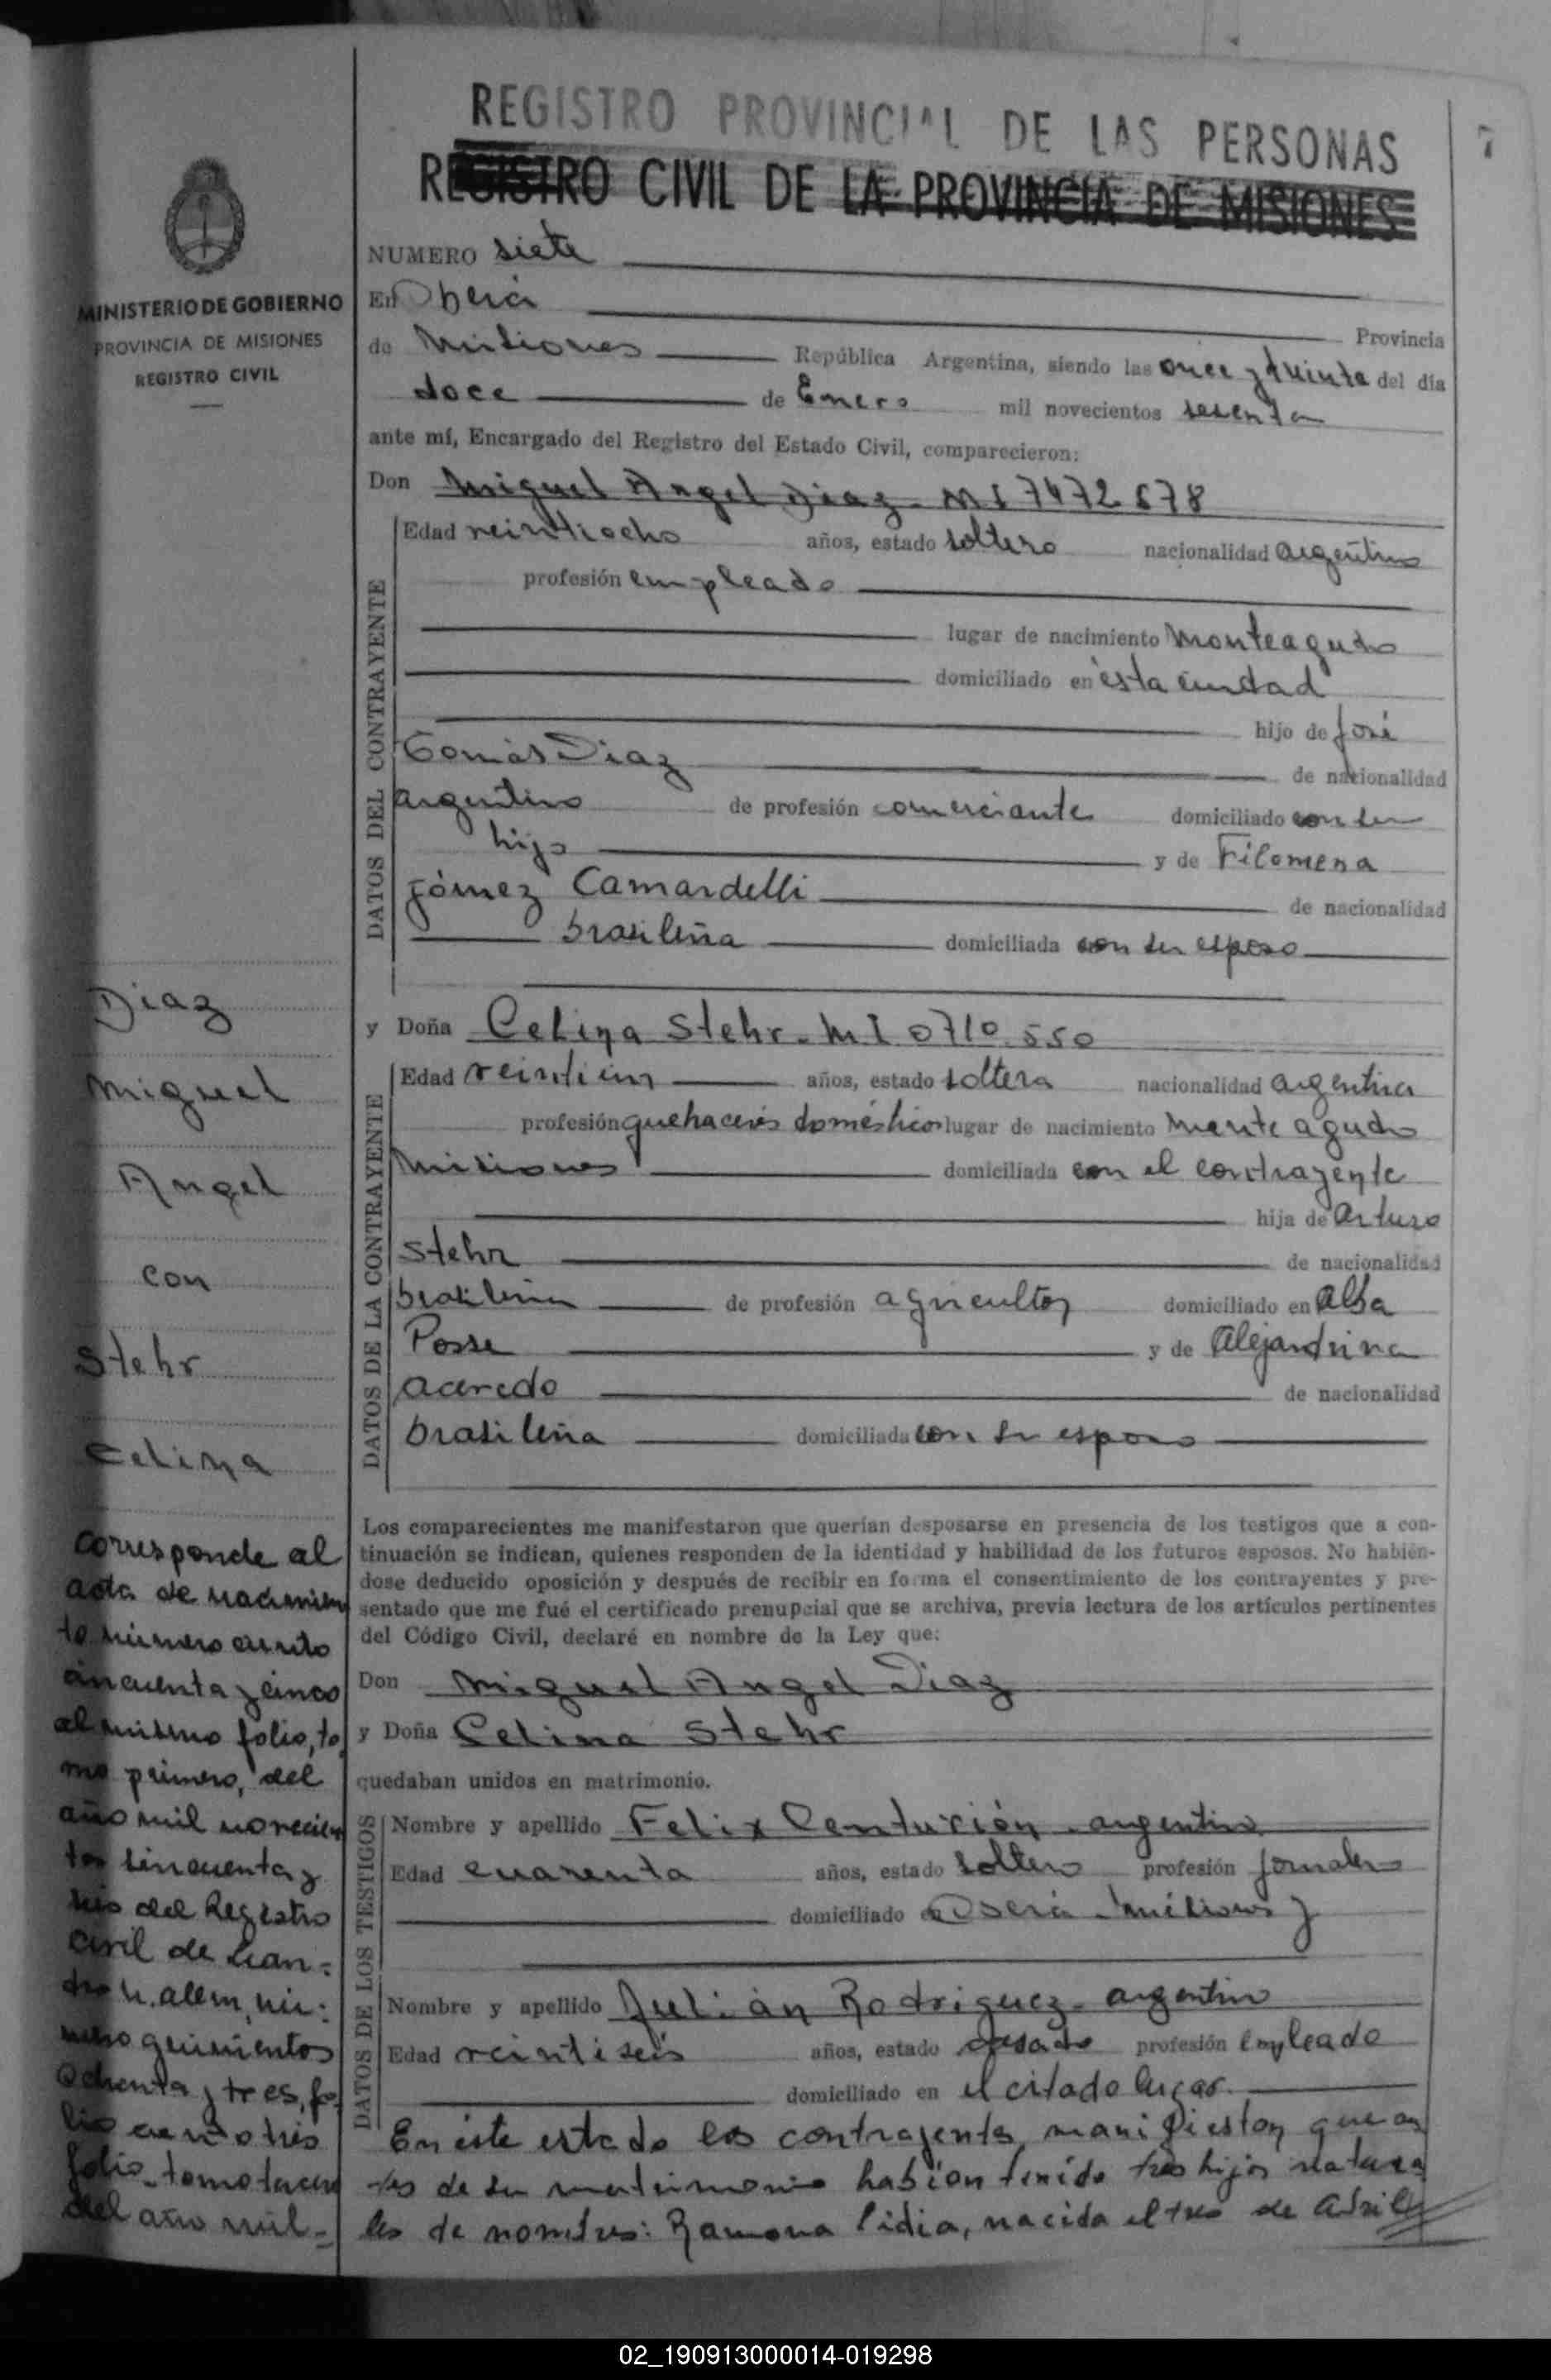 REGISTRO PROVINCIAL DE LAS PERSONAS
7
REGISTRO CIVIL DE LA PROVINCIA DE MISIONES
MINISTERIO DE GOBIERNO
PROVINCIA DE MISIONES
REGISTRO CIVIL
NUMERO siete
En Oberá
Provincia
de Misiones República Argentina, siendo las once y treinta del día
doce de Enero mil novecientos sesenta
ante mí, Encargado del Registro del Estado Civil, comparecieron:
Don Miguel Angel Diaz - MI 7472678
DATOS DEL CONTRAYENTE
Edad veintiocho años, estado soltero nacionalidad argentino
profesión empleado
lugar de nacimiento Monteagudo
domiciliado en ésta ciudad
hijo de José
Tomás Diaz de nacionalidad
argentino de profesión comerciante domiciliado con su
hijo y de Filomena
Gómez Camardelli de nacionalidad
brasileña domiciliada con su esposo
y Doña Celina Stehr - MI 0710.550
DATOS DE LA CONTRAYENTE
Edad veintiun años, estado soltera nacionalidad argentina
profesión quehaceres domésticos lugar de nacimiento Monte agudo
Misiones domiciliada con el contrayente
hija de Arturo
Stehr de nacionalidad
de profesión agricultor domiciliado en Alba
Posse y de Alejandrina
acevedo de nacionalidad
brasileña domiciliada con su esposo
Los comparecientes me manifestaron que querían desposarse en presencia de los testigos que a con-
tinuación se indican, quienes responden de la identidad y habilidad de los futuros esposos. No habién-
dose deducido oposición y después de recibir en forma el consentimiento de los contrayentes y pre-
sentado que me fué el certificado prenupcial que se archiva, previa lectura de los artículos pertinentes
del Código Civil, declaré en nombre de la Ley que:
Don Miguel Angel Diaz
y Doña Celina Stehr
quedaban unidos en matrimonio.
DATOS DE LOS TESTIGOS
Nombre y apellido Felix Centurión - argentino
Edad cuarenta años, estado soltero profesión jornalero
domiciliado en Oberá - Misiones y
Nombre y apellido Julián Rodriguez - argentino
Edad veintiseis años, estado casado profesión empleado
domiciliado en el citado lugar.
En éste estado los contrayentes manifiestan que an
tes de su matrimonio habian tenido tres hijos natura
les de nombres: Ramona Lidia, nacida el tres de Abril
Diaz
Miguel
Angel
con
Stehr
Celina
corresponde al
acta de nacimien
to número ciento
cincuenta y cinco
al mismo folio, to
mo primero, del
año mil novecien
tos cincuenta y
seis del Registro
civil de Lean-
dro N. alem, nú-
mero quinientos
ochenta y tres, fo-
lio ciento tres
folio - tomo tercero
del año mil -
02_190913000014-019298